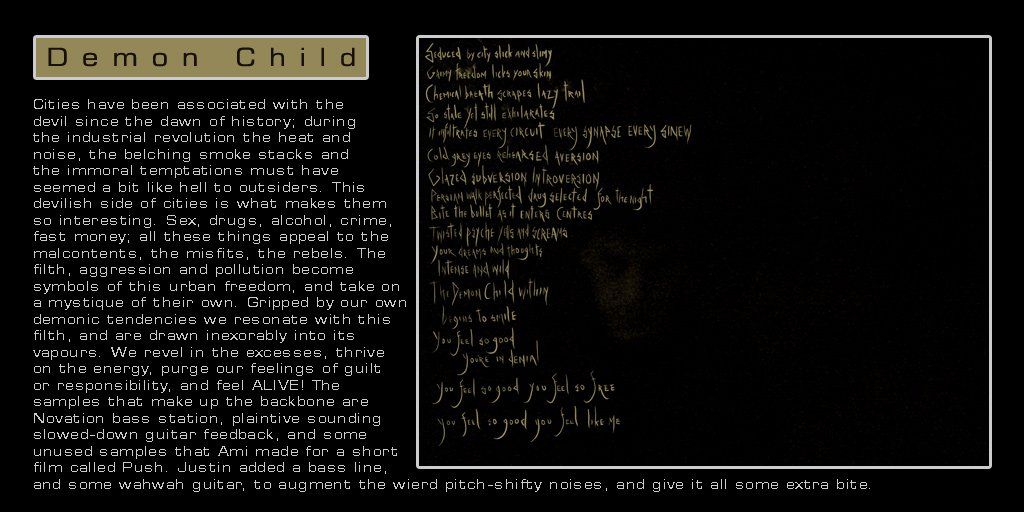 Demon Child
Cities have been associated with the
devil since the dawn of history; during
the industrial revolution the heat and
noise, the belching smoke stacks and
the immoral temptations must have
seemed a bit like hell to outsiders. This
devilish side of cities is what makes them
so interesting. Sex, drugs, alcohol, crime,
fast money; all these things appeal to the
malcontents, the misfits, the rebels. The
filth, aggression and pollution become
symbols of this urban freedom, and take on
a mystique of their own. Gripped by our own
demonic tendencies we resonate with this
filth, and are drawn inexorably into its
vapours. We revel in the excesses, thrive
on the energy, purge our feelings of guilt
or responsibility, and feel ALIVE! The
samples that make up the backbone are
Novation bass station, plaintive sounding
slowed-down guitar feedback, and some
unused samples that Ami made for a short
film called Push. Justin added a bass line,
and some wahwah guitar, to augment the wierd pitch-shifty noises, and give it all some extra bite.
Seduced by city slick and slimy
Grimy freedom licks your skin
Chemical breath scrapes lazy trail
So stale yet still exhilarates
It infiltrates every circuit every synapse every sinew
Cold grey eyes rehearsed aversion
Glazed subversion introversion
Persian walk perfected drug selected for the night
Bite the bullet as it enters centres
Twisted psyche yills and screams
Your dreams and thoughts
Intense and wild
The Demon Child within
begins to smile
You feel so good
you're in denial
you feel so good you feel so free
you feel so good you feel like me